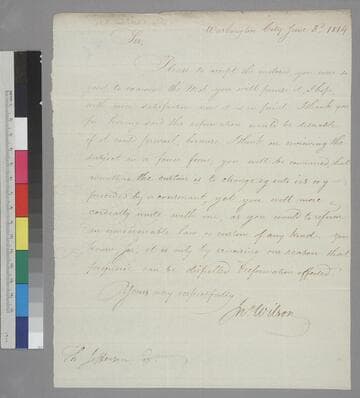 Washington City June 3d 1814
Sir,
Please to accept the inclosed you were so
good to the Mst. you will peruse it I hope
with more satisfaction now it is in print. I thank you
for having said the reformation would be desirable
if it could prevail, because I think on reviewing the
subject in a future form, you will be convinced, that
the custom is to change y into i or ey
preceded by a consonant, yet you will more
cordially unite with me, as you would to reform
an unreasonable law or custom of any kind. you
know Sir, it is only by exercising our reason that
can be dispelled & reformation effected
Yours very respectfully
Jno Wilson
Th. Jefferson Esq.